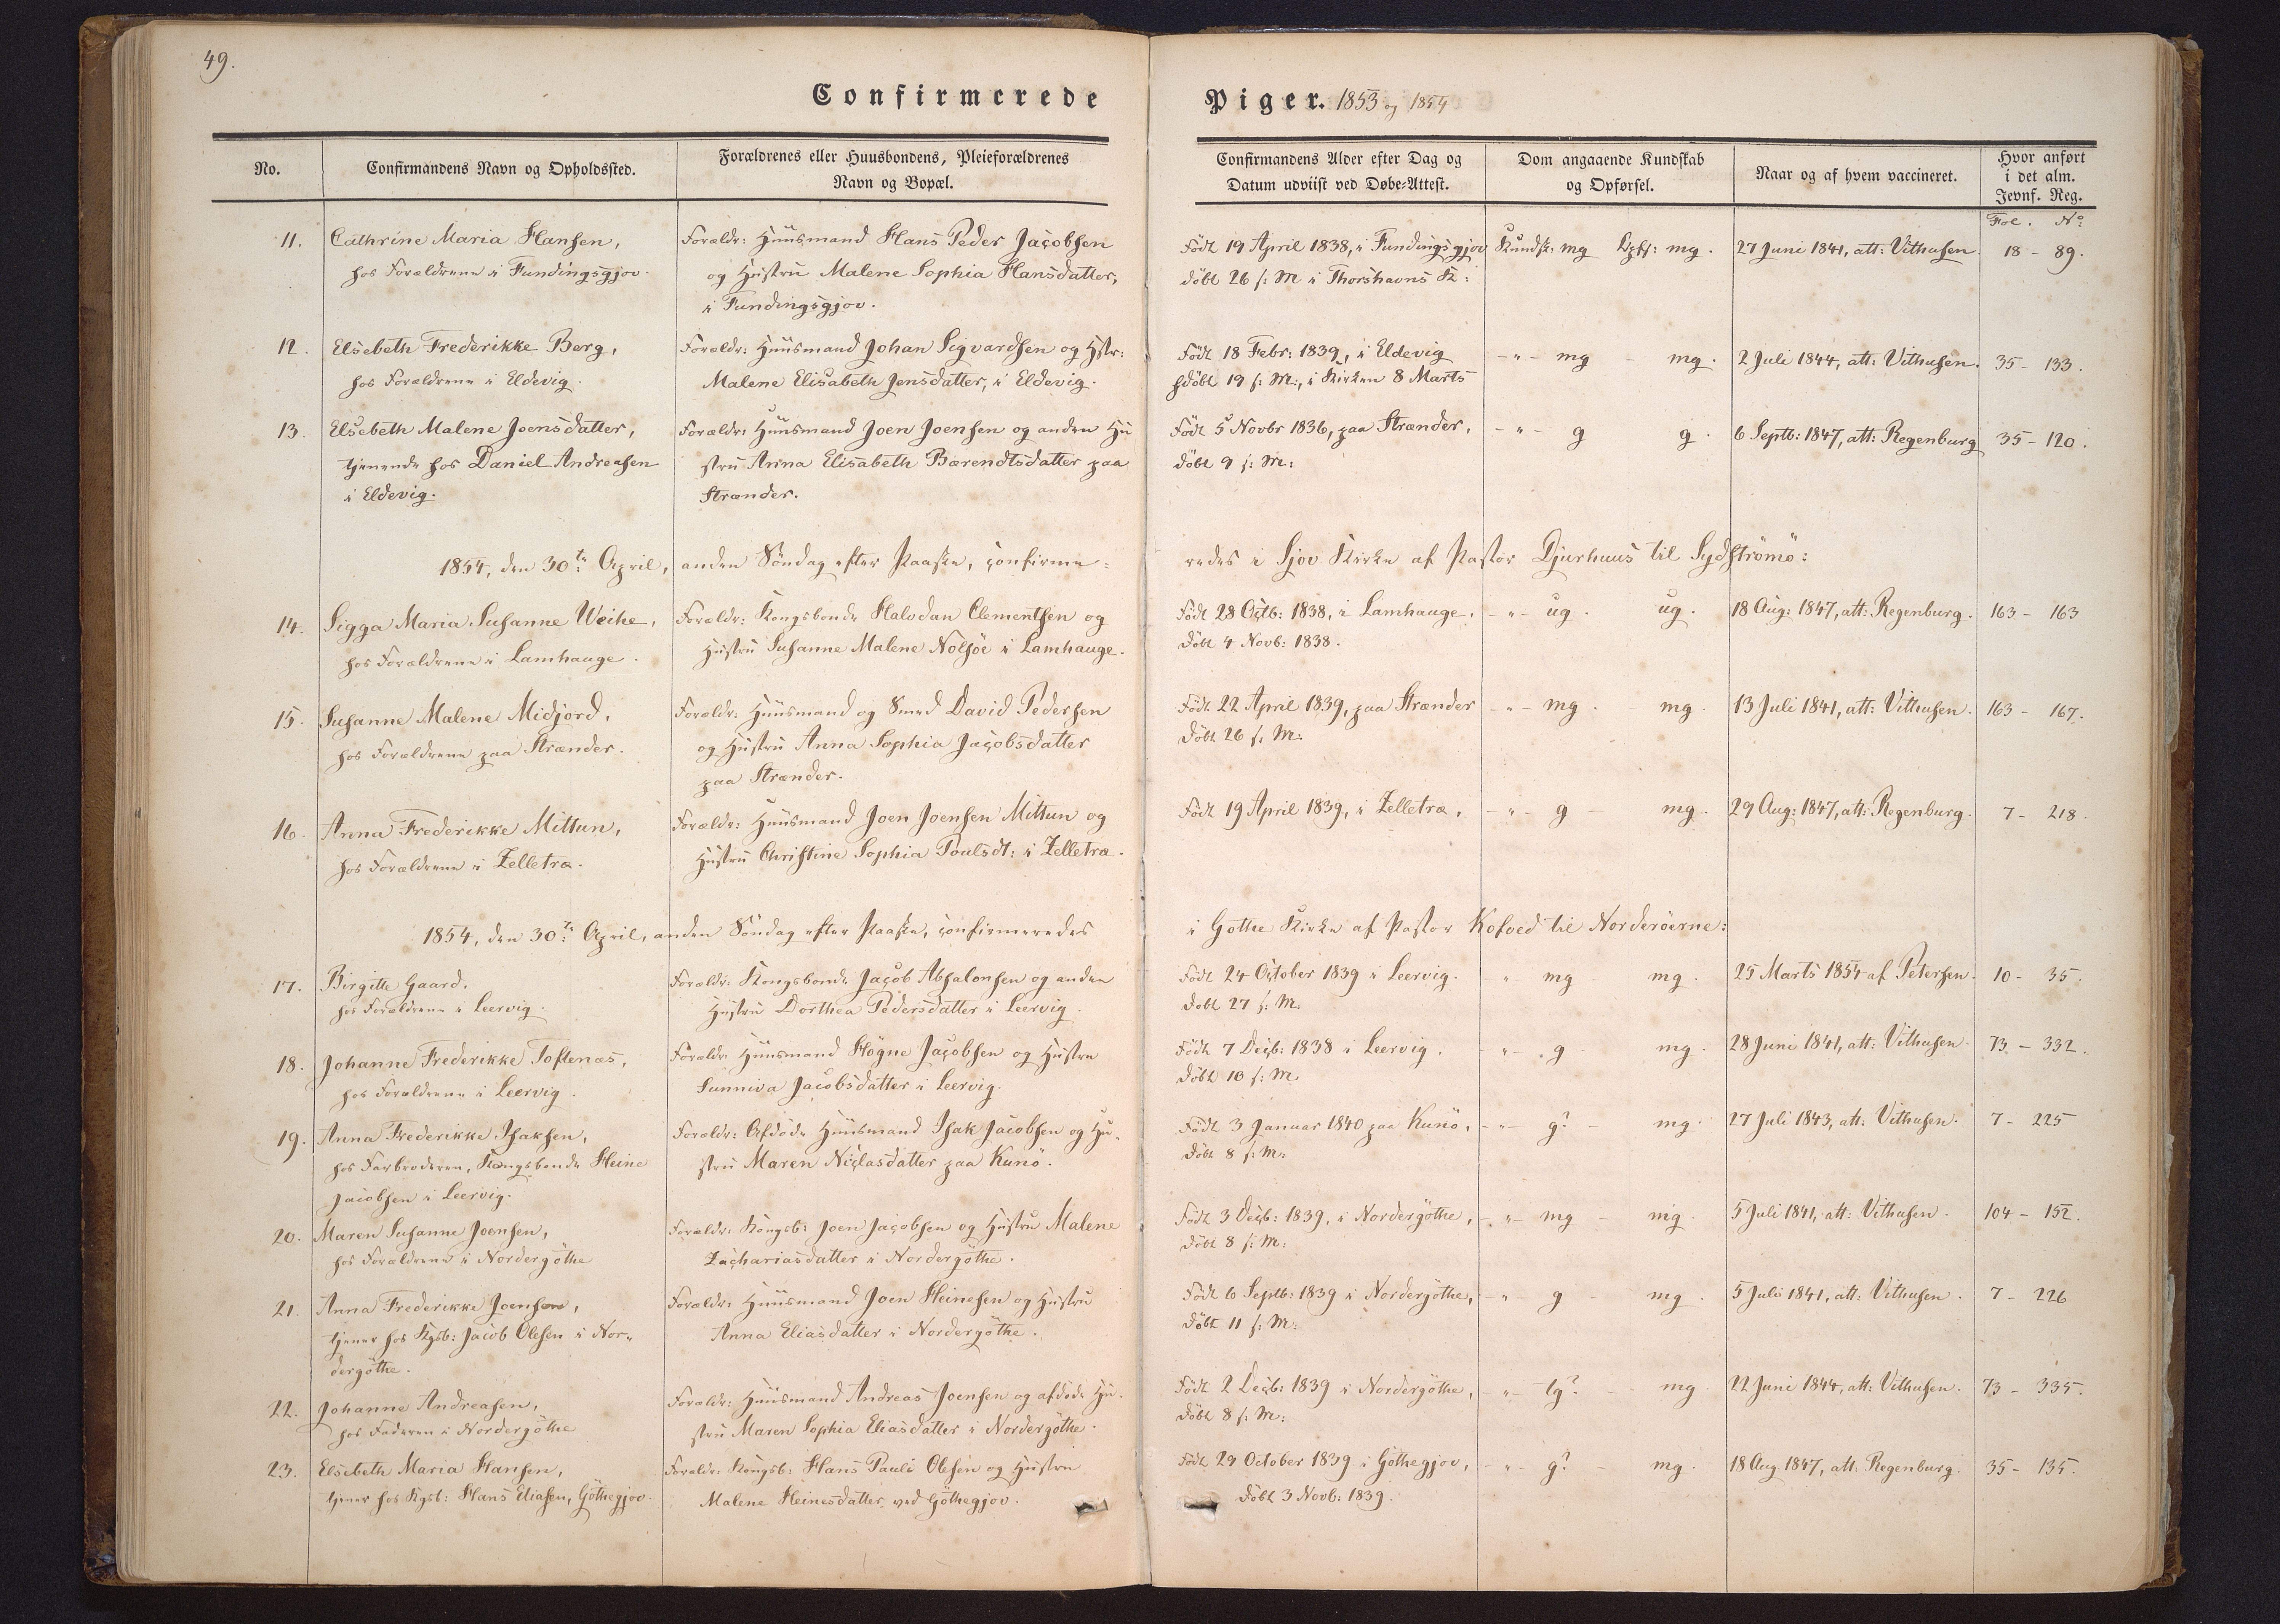 49.
Confirmerede
Piger. 1853 og 1854
No.
Confirmandens Navn og Opholdssted.
Forældrenes eller Huusbondens, Pleieforældrenes
Navn og Bopæl.
Confirmandens Alder efter Dag og
Datum udviist ved Døbe-Attest.
Dom angaaende Kundskab
og Opførsel.
Naar og af hvem vaccineret.
Hvor anført
i det alm.
Jevnf. Reg.
Fol. No
11. Cathrine Maria Hansen,
hos Forældrene i Fundingsgjov.
Forældr: Huusmand Hans Peder Jacobsen
og Hustru Malene Sophia Hansdatter,
i Fundingsgjov.
Født 19 April 1838, i Fundingsgjov
døbt 26 s: M i Thorshavns K:
Kundsk: mg Opf: mg.
27 Juni 1841, att: Vithusen.
18 - 89.
12. Elsebeth Frederikke Berg,
hos Forældrene i Eldevig.
Forældr: Huusmand Johan Sigvardsen og Hstr:
Malene Elisabeth Jensdatter, i Eldevig.
Født 18 Febr: 1839, i Eldevig
hdøbt 19 s: M:, i Kirken 8 Marts
-"- mg - mg.
2 Juli 1844, att: Vithusen.
35 - 133.
13. Elsebeth Malene Joensdatter,
tjenende hos Daniel Andreasen
i Eldevig.
Forældr: Huusmand Joen Joensen og anden Hu
stru Anna Elisabeth Bærendtsdatter paa
Strænder.
Født 5 Novbr 1836, paa Strænder,
døbt 9 s: M:
-"- g g.
6 Septb: 1847, att: Regenburg
35 - 120.
1854, den 30te April, anden Søndag efter Paaske, confirme=
redes i Sjov Kirke af Pastor Djurhuus til Sydströmö:
14. Sigga Maria Susanne Weihe,
hos Forældrene i Lamhauge.
Forældr: Kongsbonde Halvdan Clementsen og
Hustru Susanne Malene Nolsöe i Lamhauge.
Født 28 Octb: 1838, i Lamhauge.
døbt 4 Novb: 1838.
-"- ug. ug.
18 Aug: 1847, att: Regenburg.
163 - 163
15. Susanne Malene Midjord,
hos Forældrene paa Strænder.
Forældr: Huusmand og Smed David Pedersen
og Hustru Anna Sophia Jacobsdatter
paa Strænder.
Født 22 April 1839, paa Strænder
døbt 26 s: M:
-"- mg. mg.
13 Juli 1841, att: Vithusen.
163 - 167.
16. Anna Frederikke Mittun,
hos Forældrene i Zelletræ.
Forældr: Huusmand Joen Joensen Mittun og
Hustru Christine Sophia Poulsdt: i Zelletræ.
Født 19 April 1839, i Zelletræ,
-"- g - mg.
29 Aug: 1847, att: Regenburg.
7 - 218.
1854, den 30te April, anden Søndag efter Paaske, confirmeredes
i Gothe Kirke af Pastor Kofoed til Norderöerne:
17. Birgitte Gaard,
hos Forældrene i Leervig.
Forældr: Kongsbonde Jacob Absalonsen og anden
Hustru Dorthea Pedersdatter i Leervig.
Født 24 October 1839 i Leervig.
døbt 27 s: M.
" mg mg.
25 Marts 1854 af Petersen.
10 - 35.
18. Johanne Frederikke Toftenæs,
hos Forældrene i Leervig.
Forældr: Huusmand Högne Jacobsen og Hustru
Sunniva Jacobsdatter i Leervig.
Født 7 Decb: 1838 i Leervig.
døbt 10 s: M.
-"- g mg.
28 Juni 1841, att: Vithusen.
73 - 332.
19. Anna Frederikke Isaksen,
hos Farbroderen, Kongsbonde Heine
Jacobsen i Leervig.
Forældr: Afdøde Huusmand Isak Jacobsen og Hu-
stru Maren Niclasdatter paa Kunö.
Født 3 Januar 1840 paa Kunö.
døbt 8 s: M:
-"- g? - mg.
27 Juli 1843, att: Vithusen.
7 - 225
20. Maren Susanne Joensen,
hos Forældrene i Nordergöthe
Forældr: Kongsb: Joen Jacobsen og Hustru Malene
Zachariasdatter i Nordergöthe.
Født 3 Decb: 1839, i Nordergöthe,
døbt 8 s: M:
-"- mg - mg.
5 Juli 1841, att: Vithusen.
104 - 152.
21. Anna Frederikke Joensen,
tjener hos Kgsb: Jacob Olesen i Nor-
dergöthe.
Forældr: Huusmand Joen Heinesen og Hustru
Anna Eliasdatter i Nordergöthe.
Født 6 Septb: 1839 i Nordergöthe,
døbt 11 s: M:
-"- g - mg.
5 Juli 1841, att: Vithusen.
7 - 226
22. Johanne Andreasen,
hos Faderen i Nordergöthe
Forældr: Huusmand Andreas Joensen og afdøde Hu-
stru Maren Sophia Eliasdatter i Nordergöthe.
Født 2 Decb: 1839 i Nordergöthe,
døbt 8 s: M:
-"- tg? - mg.
22 Juni 1844, att: Vithusen.
73 - 335.
23. Elsebeth Maria Hansen,
tjener hos Kgsb: Hans Eliasen, Göthegjov.
Forældr: Kongsb: Hans Pauli Olesen og Hustru
Malene Heinesdatter ved Göthegjov.
Født 29 October 1839 i Göthegjov,
døbt 3 Novb: 1839.
-"- g? - mg.
18 Aug 1847, att: Regenburg.
35 - 135.